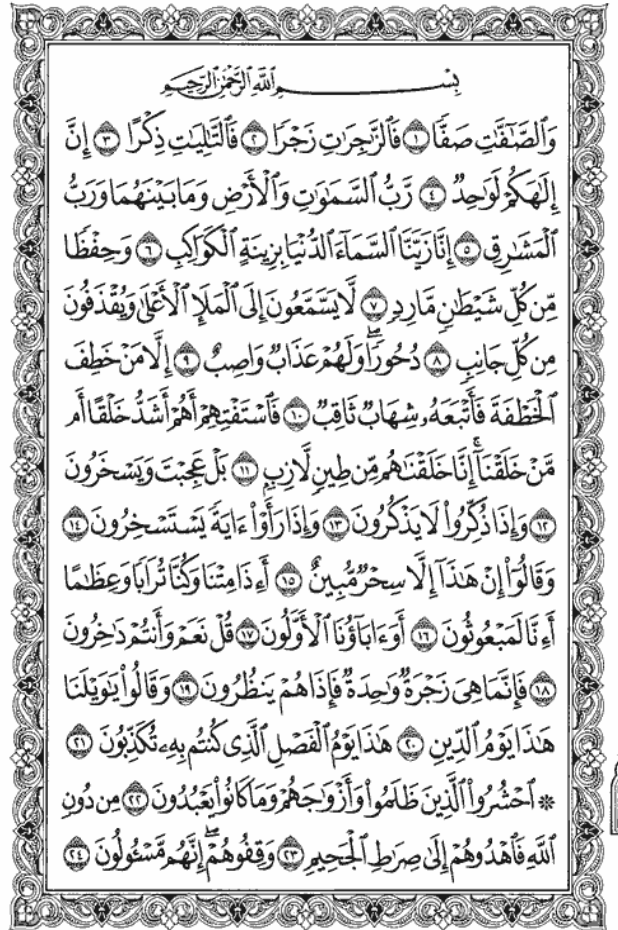 بِسْمِ اللَّهِ الرَّحْمَٰنِ الرَّحِيمِ
وَالصَّٰٓفَّٰتِ صَفًّا ١ فَالزَّٰجِرَٰتِ زَجْرًا ٢ فَالتَّٰلِيَٰتِ ذِكْرًا ٣ إِنَّ
إِلَٰهَكُمْ لَوَٰحِدٌ ٤ رَّبُّ السَّمَٰوَٰتِ وَالْأَرْضِ وَمَا بَيْنَهُمَا وَرَبُّ
الْمَشَٰرِقِ ٥ إِنَّا زَيَّنَّا السَّمَآءَ الدُّنْيَا بِزِينَةٍ الْكَوَاكِبِ ٦ وَحِفْظًا
مِّن كُلِّ شَيْطَٰنٍ مَّارِدٍ ٧ لَّا يَسَّمَّعُونَ إِلَى الْمَلَإِ الْأَعْلَىٰ وَيُقْذَفُونَ
مِن كُلِّ جَانِبٍ ٨ دُحُورًا ۖ وَلَهُمْ عَذَابٌ وَاصِبٌ ٩ إِلَّا مَنْ خَطِفَ
الْخَطْفَةَ فَأَتْبَعَهُۥ شِهَابٌ ثَاقِبٌ ١٠ فَاسْتَفْتِهِمْ أَهُمْ أَشَدُّ خَلْقًا أَم
مَّنْ خَلَقْنَآ ۚ إِنَّا خَلَقْنَٰهُم مِّن طِينٍ لَّازِبٍ ١١ بَلْ عَجِبْتَ وَيَسْخَرُونَ
١٢ وَإِذَا ذُكِّرُوا۟ لَا يَذْكُرُونَ ١٣ وَإِذَا رَأَوْا۟ ءَايَةً يَسْتَسْخِرُونَ ١٤
وَقَالُوٓا۟ إِنْ هَٰذَآ إِلَّا سِحْرٌ مُّبِينٌ ١٥ أَءِذَا مِتْنَا وَكُنَّا تُرَابًا وَعِظَٰمًا
أَءِنَّا لَمَبْعُوثُونَ ١٦ أَوَءَابَآؤُنَا الْأَوَّلُونَ ١٧ قُلْ نَعَمْ وَأَنتُمْ دَٰخِرُونَ
١٨ فَإِنَّمَا هِىَ زَجْرَةٌ وَٰحِدَةٌ فَإِذَا هُمْ يَنظُرُونَ ١٩ وَقَالُوا۟ يَٰوَيْلَنَا
هَٰذَا يَوْمُ الدِّينِ ٢٠ هَٰذَا يَوْمُ الْفَصْلِ الَّذِى كُنتُم بِهِۦ تُكَذِّبُونَ ٢١
۞ احْشُرُوا۟ الَّذِينَ ظَلَمُوا۟ وَأَزْوَٰجَهُمْ وَمَا كَانُوا۟ يَعْبُدُونَ ٢٢ مِن دُونِ
اللَّهِ فَاهْدُوهُمْ إِلَىٰ صِرَٰطِ الْجَحِيمِ ٢٣ وَقِفُوهُمْ ۖ إِنَّهُم مَّسْـُٔولُونَ ٢٤